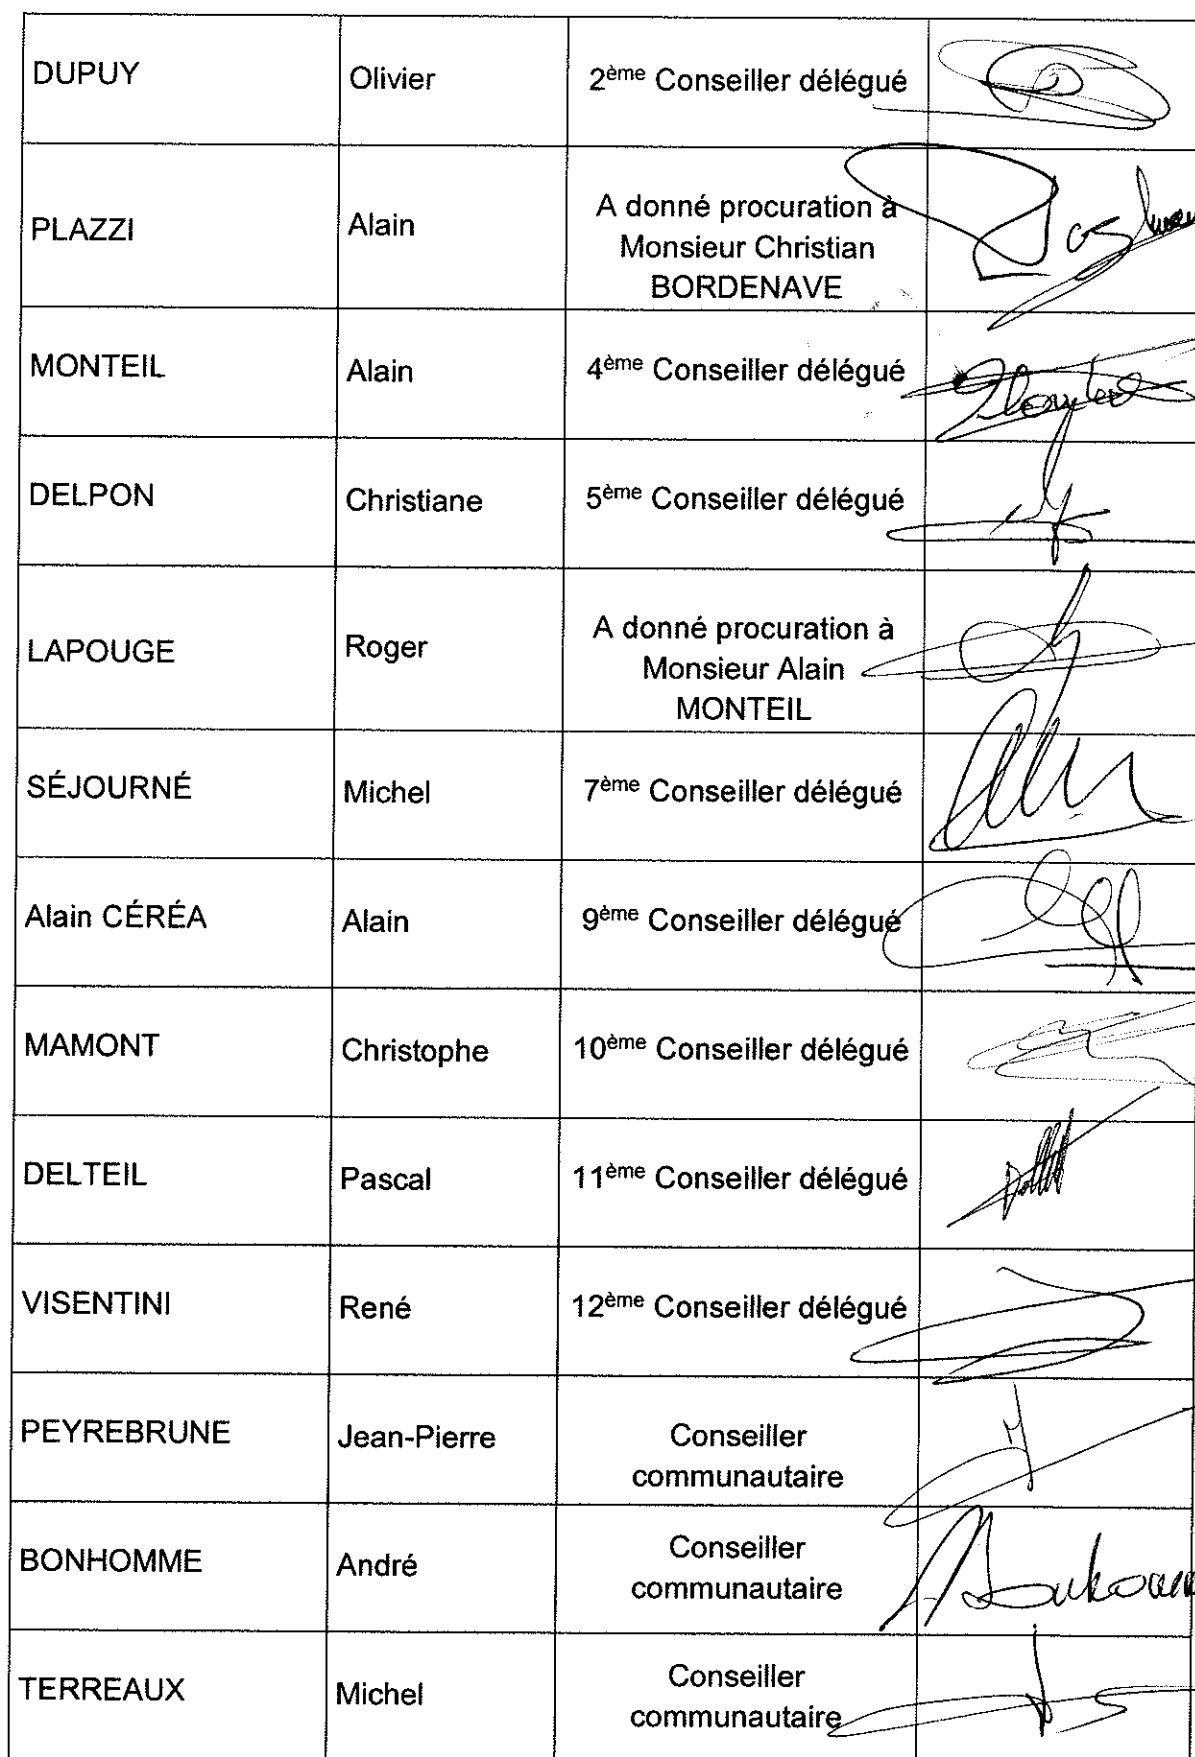 DUPUY Olivier 2ème Conseiller délégué
PLAZZI Alain A donné procuration à
Monsieur Christian
BORDENAVE
MONTEIL Alain 4ème Conseiller délégué
DELPON Christiane 5ème Conseiller délégué
LAPOUGE Roger A donné procuration à
Monsieur Alain
MONTEIL
SÉJOURNÉ Michel 7ème Conseiller délégué
Alain CÉRÉA Alain 9ème Conseiller délégué
MAMONT Christophe 10ème Conseiller délégué
DELTEIL Pascal 11ème Conseiller délégué
VISENTINI René 12ème Conseiller délégué
PEYREBRUNE Jean-Pierre Conseiller
communautaire
BONHOMME André Conseiller
communautaire
TERREAUX Michel Conseiller
communautaire